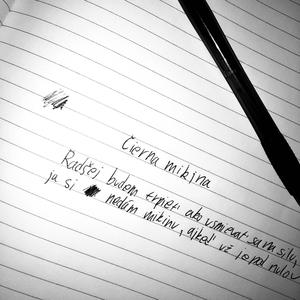 Čierna mikina
Radšej budem trpieť ako usmievať sa na silu,
ja si nedám mikinu, ajkeď už je pod nulou